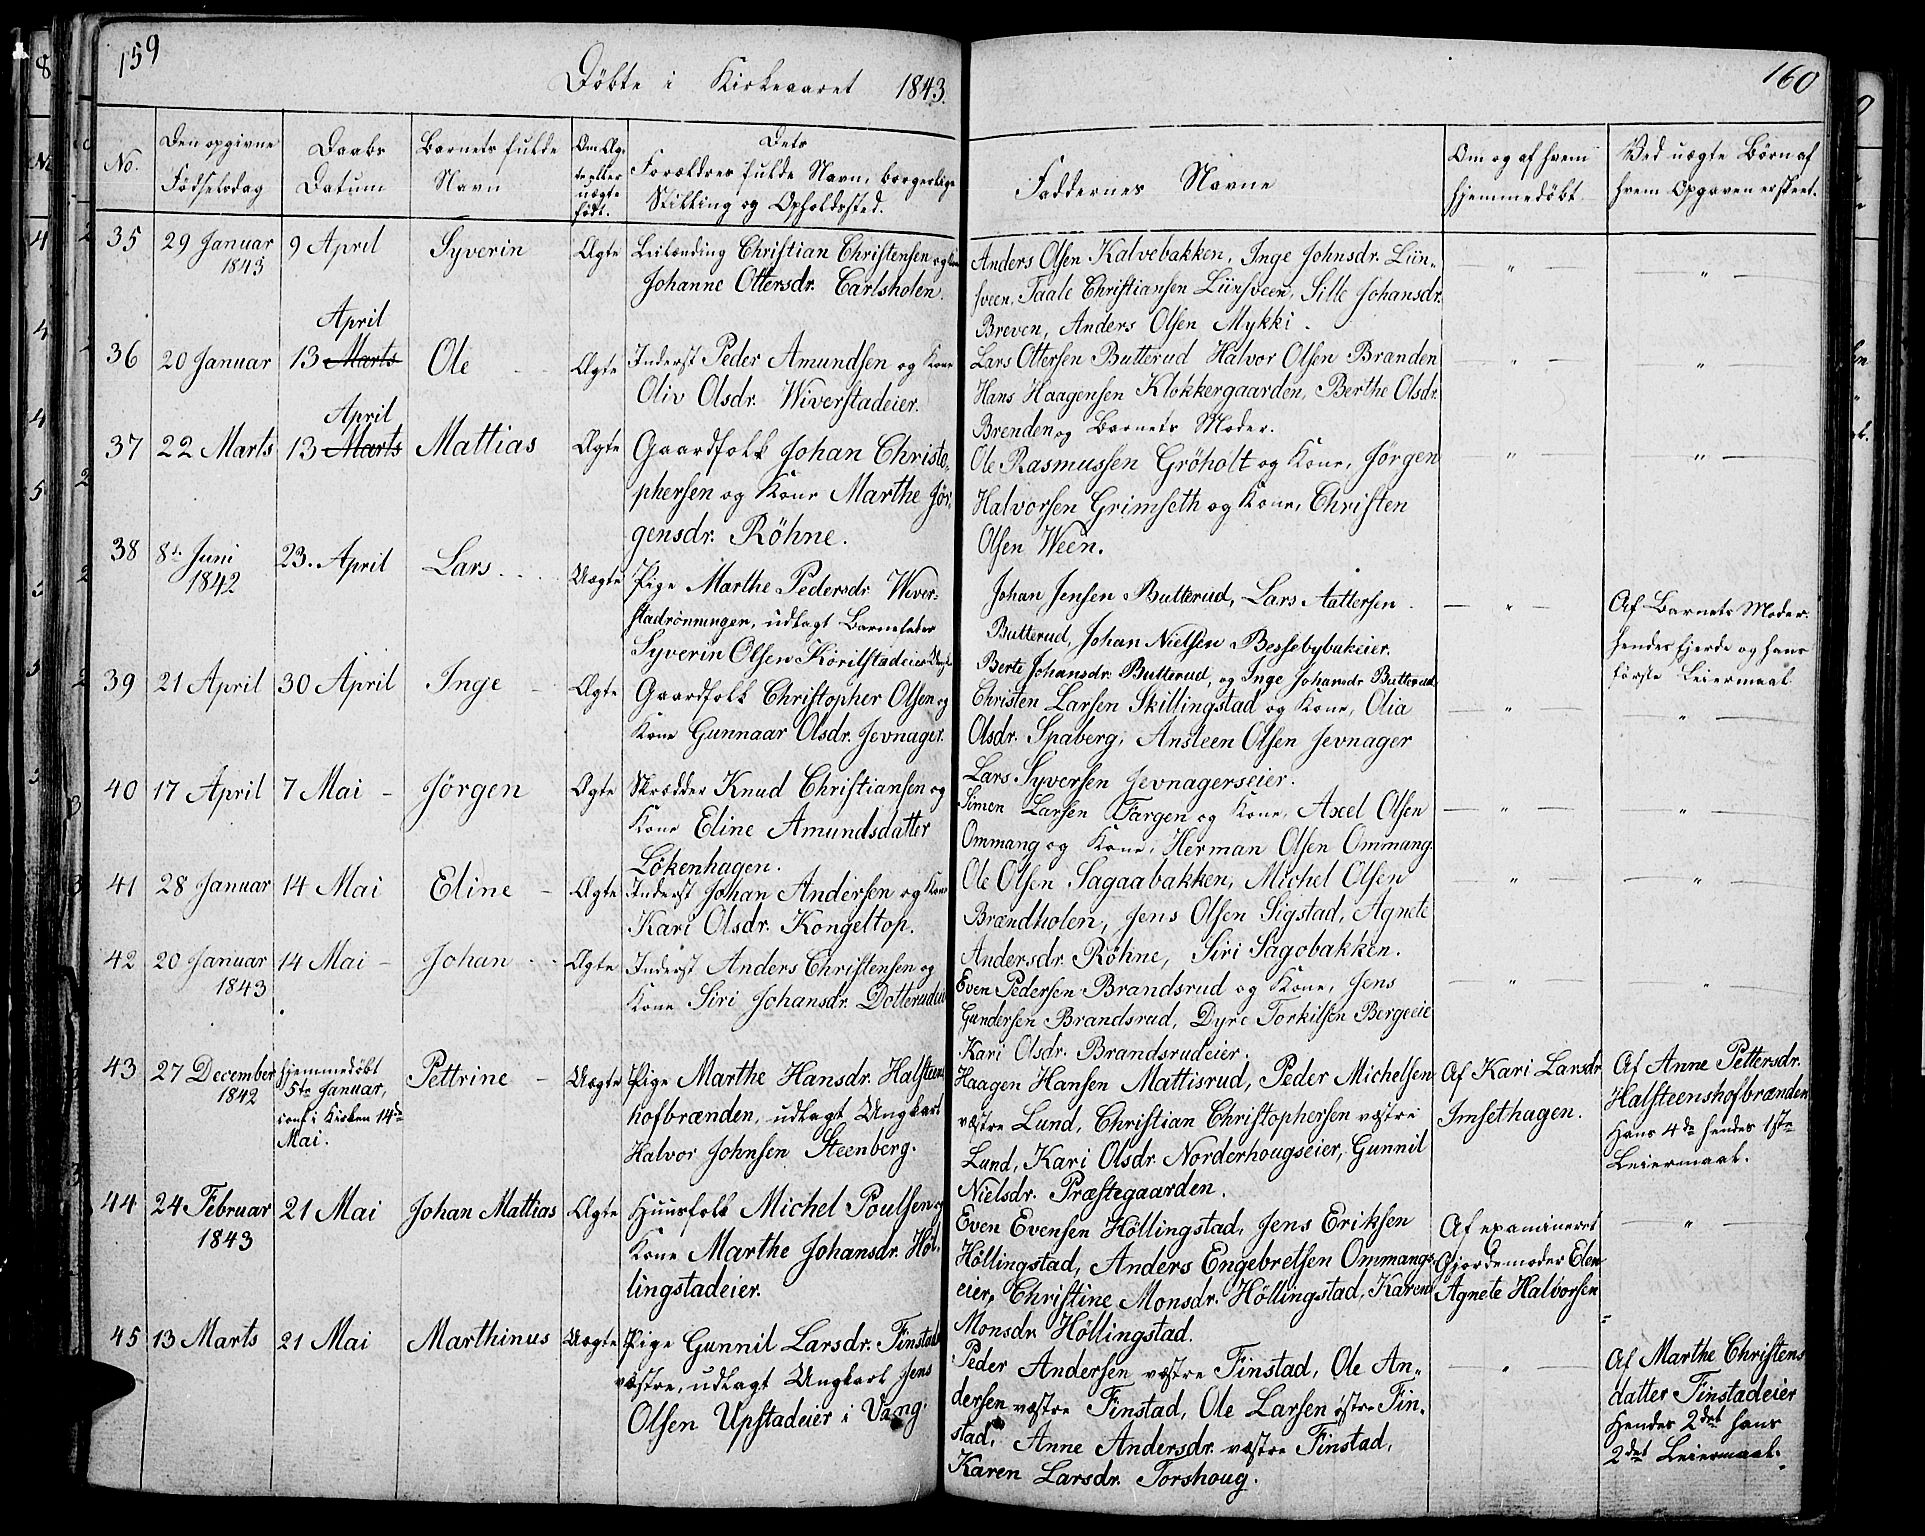 159
Döbte i Kirkeaaret 1843.
No.
Den opgivne
Födselsdag
Daabs
Datum
Barnets fulde
Navn
Om Æg-
te eller
uægte
født.
Dets
Forældres fulde Navn, borgerlige
Stilling og Opholdssted.
35
29 Januar
1843
9 April
Syverin
Ægte
Leilending Christian Christensen og
Johanne Ottersdr. Carlsholen.
36
20 Januar
April
13 Marts
Ole
Ægte
Inderst Peder Amundsen og Kone
Oliv Olsdr. Wiverstadeier.
37
22 Marts
April
13 Marts
Mattias
Ægte
Gaardfolk Johan Christo-
phersen og Kone Marthe Jör-
gensdr. Röhne.
38
8de Juni
1842
23. April
Lars
Uægte
Pige Marthe Pedersdr. Wiver-
stadrönningen, udlagt Barnefader
Syverin Olsen Korilstadeier
39
21 April
30 April
Inge
Ægte
Gaardfolk Christopher Olsen og
Kone Gunnaar Olsdr. Jevnager.
40
17 April
7 Mai
Jörgen
Ægte
Skrædder Knud Christiansen og
Kone Eline Amundsdatter
Lökenhagen.
41
28 Januar
14 Mai
Eline
Ægte
Inderst Johan Andersen og Kone
Kari Olsdr. Kongeltop.
42
20 Januar
1843
14 Mai
Johan
Ægte
Inderst Anders Christensen og
Kone Siri Johansdr. Dotterudeie
43
27 December
1842
hjemmedöbt
5te Januar,
conf i Kirken 14de
Mai.
Pettrine
Uægte
Pige Marthe Hansdr. Halsteens
hofbrænden, udlagt Ungkarl
Halvor Johnsen Steenberg.
44
24 Februar
1843
21 Mai
Johan Mattias
Ægte
Huusfolk Michel Poulsen og
Kone Marthe Johansdr. Höl-
lingstadeier.
45
13 Marts
21 Mai
Marthinus
Uægte
Pige Gunnil Larsdr. Finstad
væstre, udlagt Ungkarl Jens
Olsen Upstadeier i Vang.
160
Faddernes Navne
Om og af hvem
hjemmedöbt.
Ved uægte Börn af
hvem Opgaven er skeet.
Anders Olsen Kalvebakken, Inge Johnsdr. Liin-
sveen, Taale Christiansen Liinsveen, Sille Johansdr.
Breven, Anders Olsen Mykki.
Lars Ottersen Butterud Halvor Olsen Branden
Hans Haagensen Klokkergaarden, Berthe Olsdr.
Brenden og Barnets Moder.
Ole Rasmussen Gröholt og Kone, Jörgen
Halvorsen Grimseth og Kone, Christen
Olsen Ween.
Johan Jensen Butterud, Lars Aattersen
Butterud, Johan Nielsen Bessebybakeier.
Berte Johansdr. Butterud, og Inge Johansdr Butterud
Af Barnets Moder.
hendes fjerde og hans
første Leiermaal
Christen Larsen Skillingstad og Kone, Olia
Olsdr. Spaberg, Ansteen Olsen Jevnager
Lars Syversen Jevnagerseier.
Simen Larsen Fargen og Kone, Axel Olsen
Ommang og Kone, Herman Olsen Ommang.
Ole Olsen Sagaabakken, Michel Olsen
Brændholen, Jens Olsen Sigstad, Agnete
Andersdr. Röhne, Siri Sagobakken.
Even Pedersen Brandsrud og Kone, Jens
Gundersen Brandsrud, Dyre Torkilsen Bergeeie
Kari Olsdr. Brandsrudeier.
Haagen Hansen Mattisrud, Peder Michelsen
væstre Lund, Christian Christophersen væstre
Lund, Kari Olsdr. Norderhougseier, Gunnil
Nielsdr. Præstegaarden.
Af Kari Larsdr
Imsethagen.
Af Anne Pettersdr.
Halsteenshofbrænden
Hans 4de hendes 1ste
Leiermaal.
Even Evensen Höllingstad, Jens Eriksen
Höllingstad, Anders Engebretsen Ommangs-
eier, Christine Monsdr. Höllingstad, Karen
Monsdr. Höllingstad.
Af examineret
Gjordemoder Elen
Agnete Halvorsen
Peder Andersen væstre Finstad, Ole An-
dersen væstre Finstad, Ole Larsen östre Fin-
stad, Anne Andersdr. væstre Finstad,
Karen Larsdr. Torshoug.
Af Marthe Christens
datter Finstadeier
Hendes 2det hans
2det Leiermaal.